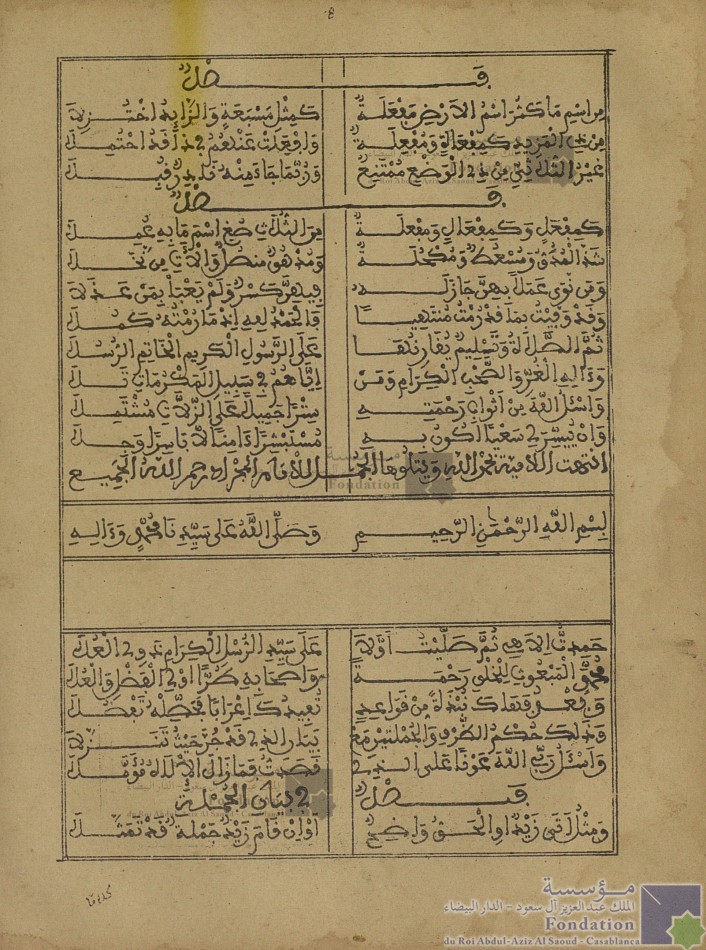 8
فصل
من اسم ما كثر اسم الارض مفعلة كمثل مسبعة والزايد اختزلا
من ذي المزيد كمفعاة ومفعلة وافعلت عنهم في ذا قد احتملا
غير الثلاثي من ذي الوضع ممتنع وربما جاء منه نادر قبلا
فصل
كمفعل وكمفعال ومفعلة من الثلاثي صغ اسم ما به عملا
شذ المدق ومسعط ومكحلة ومدهن منصل والات من نخلا
ومن نوى عملا بهن جاز له فيهن كسر ولم يعبأ بمن عذلا
وقد وفيت بما قد رمت منتهيا فالحمد لله إذ ما رمته كملا
ثم الصلاة وتسليم يقارنها على الرسول الكريم الخاتم الرسلا
وءاله الغر والصحب الكرام ومن اياهم في سبيل المكرمات تلا
واسئل الله من أثواب رحمته سترا جميلا على الزلات مشتملا
وان ييسر لي سعيا اكون به مستبشرا ءامنا لا باسرا وجلا
انتهت اللامية بحمد الله ويتلوها الجمل للامام المجراد رحم الله الجميع
بسم الله الرحمن الرحيم وصلى الله على سيدنا محمد وءاله
حمدت الاهي ثم صليت اولا على سيد الرسل الكرام ذوي العلا
محمد المبعوث للخلق رحمة واصحابه طرا اولي الفضل والعلا
وبعد فهاك نبذة من قواعد تفيدك اعرابا فحصله تفضلا
وذلك حكم الظرف والجملتين مع بيان الذي قد جر حيث تنزلا
واسئل ربي الله عونا على الذي قصدت فما زال الالاه مؤملا
فصل في بيان الجملة
ومثل اتى زيد او الحق واضح او ان قام زيد جملة قد تمثلا
مؤسسة
الملك عبد العزيز آل سعود - الدار البيضاء
Fondation
du Roi Abdul-Aziz Al Saoud - Casablanca